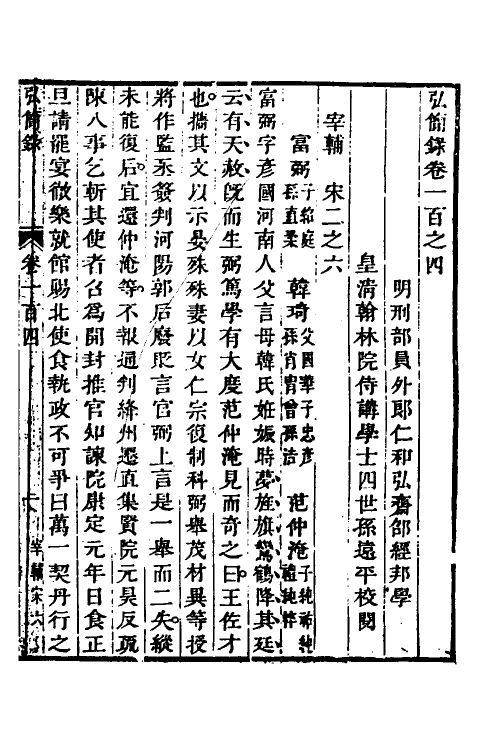 弘簡錄卷一百之四
明刑部員外郎仁和弘齋邵經邦學
皇清翰林院侍講學士四世孫遠平校閱
宰輔 宋二之六
富弼 子紹庭 孫直柔 韓琦 父國華 子忠彥 孫肖冑 曾孫浩 范仲淹 子純祐 純禮 純粹
富弼字彥國河南人父言母韓氏姙娠時夢旌旗鶴降其廷
云有天赦旣而生弼篤學有大度范仲淹見而奇之曰王佐才
也攜其文以示晏殊殊妻以女仁宗復制科弼舉茂材異等授
將作監丞簽判河陽郭后廢貶言官弼上言是一舉而二失縱
未能復后宜還仲淹等不報通判絳州遷直集賢院元昊反疏
陳八事乞斬其使者召爲開封推官知諫院康定元年日食正
旦請罷宴徹樂就館賜北使食執政不可爭曰萬一契丹行之
弘簡錄 卷一百四 宰輔宋六